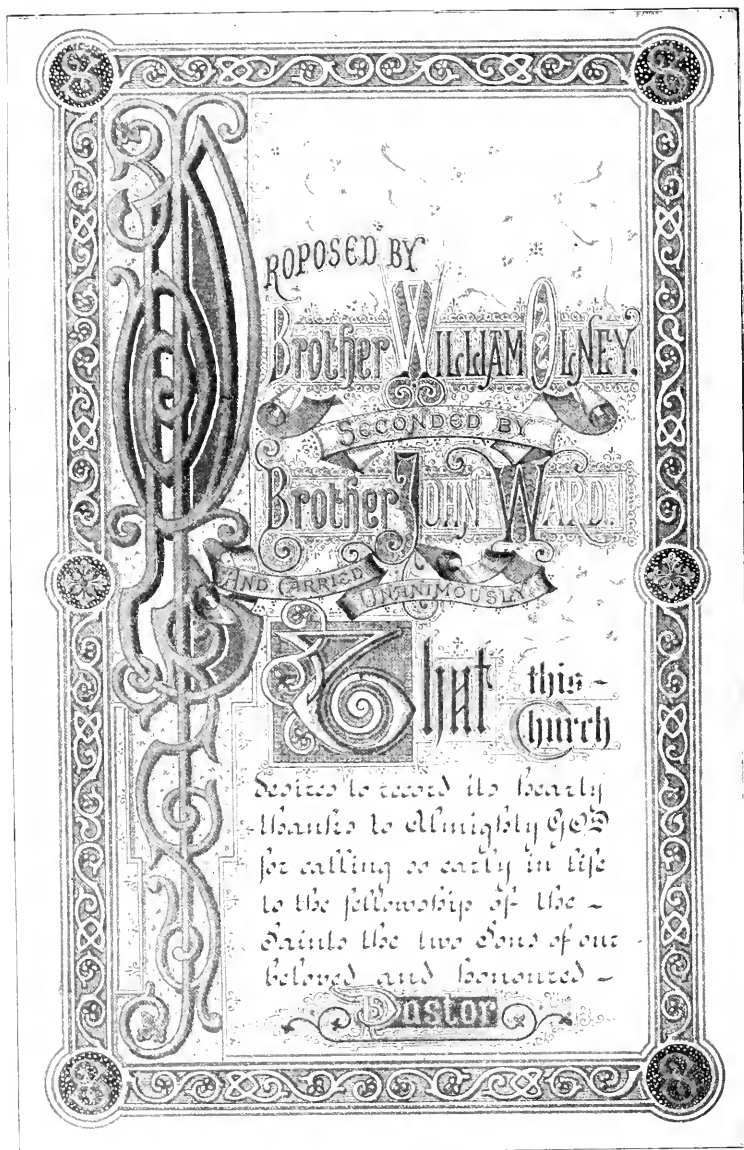 PROPOSED BY
Brother WILLIAM OLNEY.
SECONDED BY
Brother JOHN WARD.
AND CARRIED UNANIMOUSLY
That this
Church
desires to record its hearty
thanks to Almighty GOD
for calling so early in life
to the fellowship of the
Saints the two Sons of our
beloved and honoured
Pastor